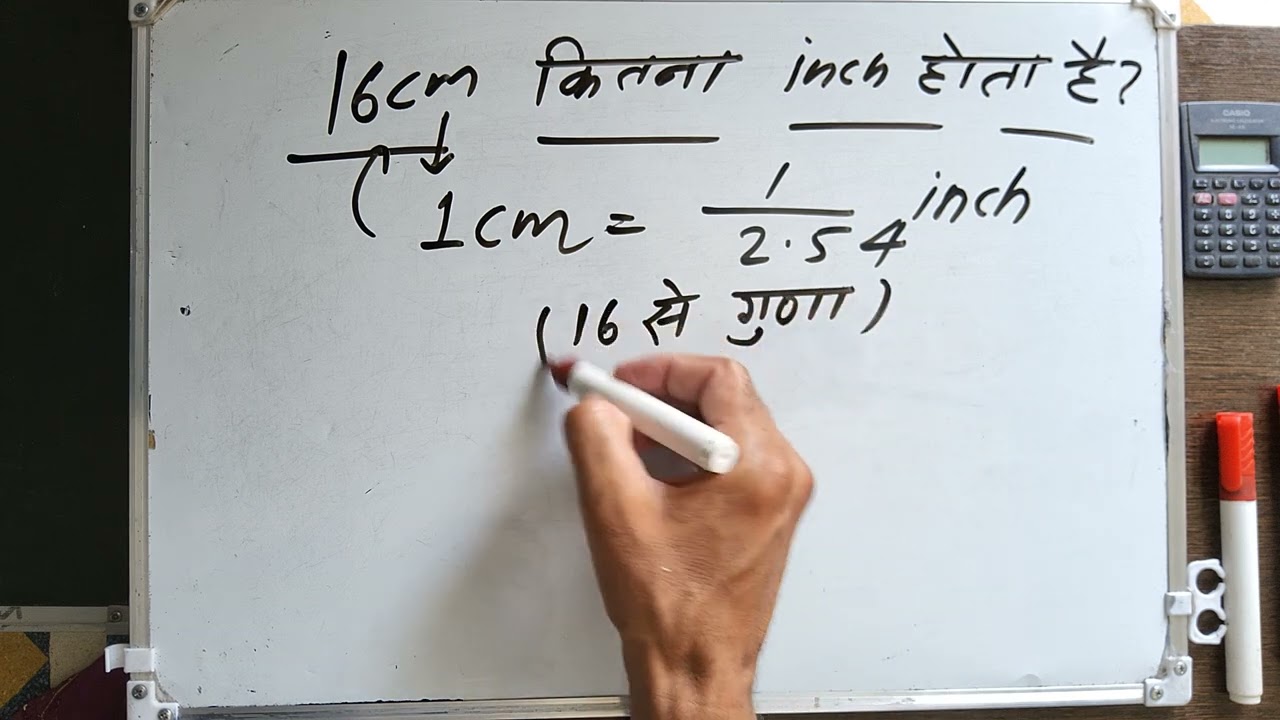 16cm कितना inch होता है?
1cm = 1/2.54 inch
(16 से गुणा)
CASIO